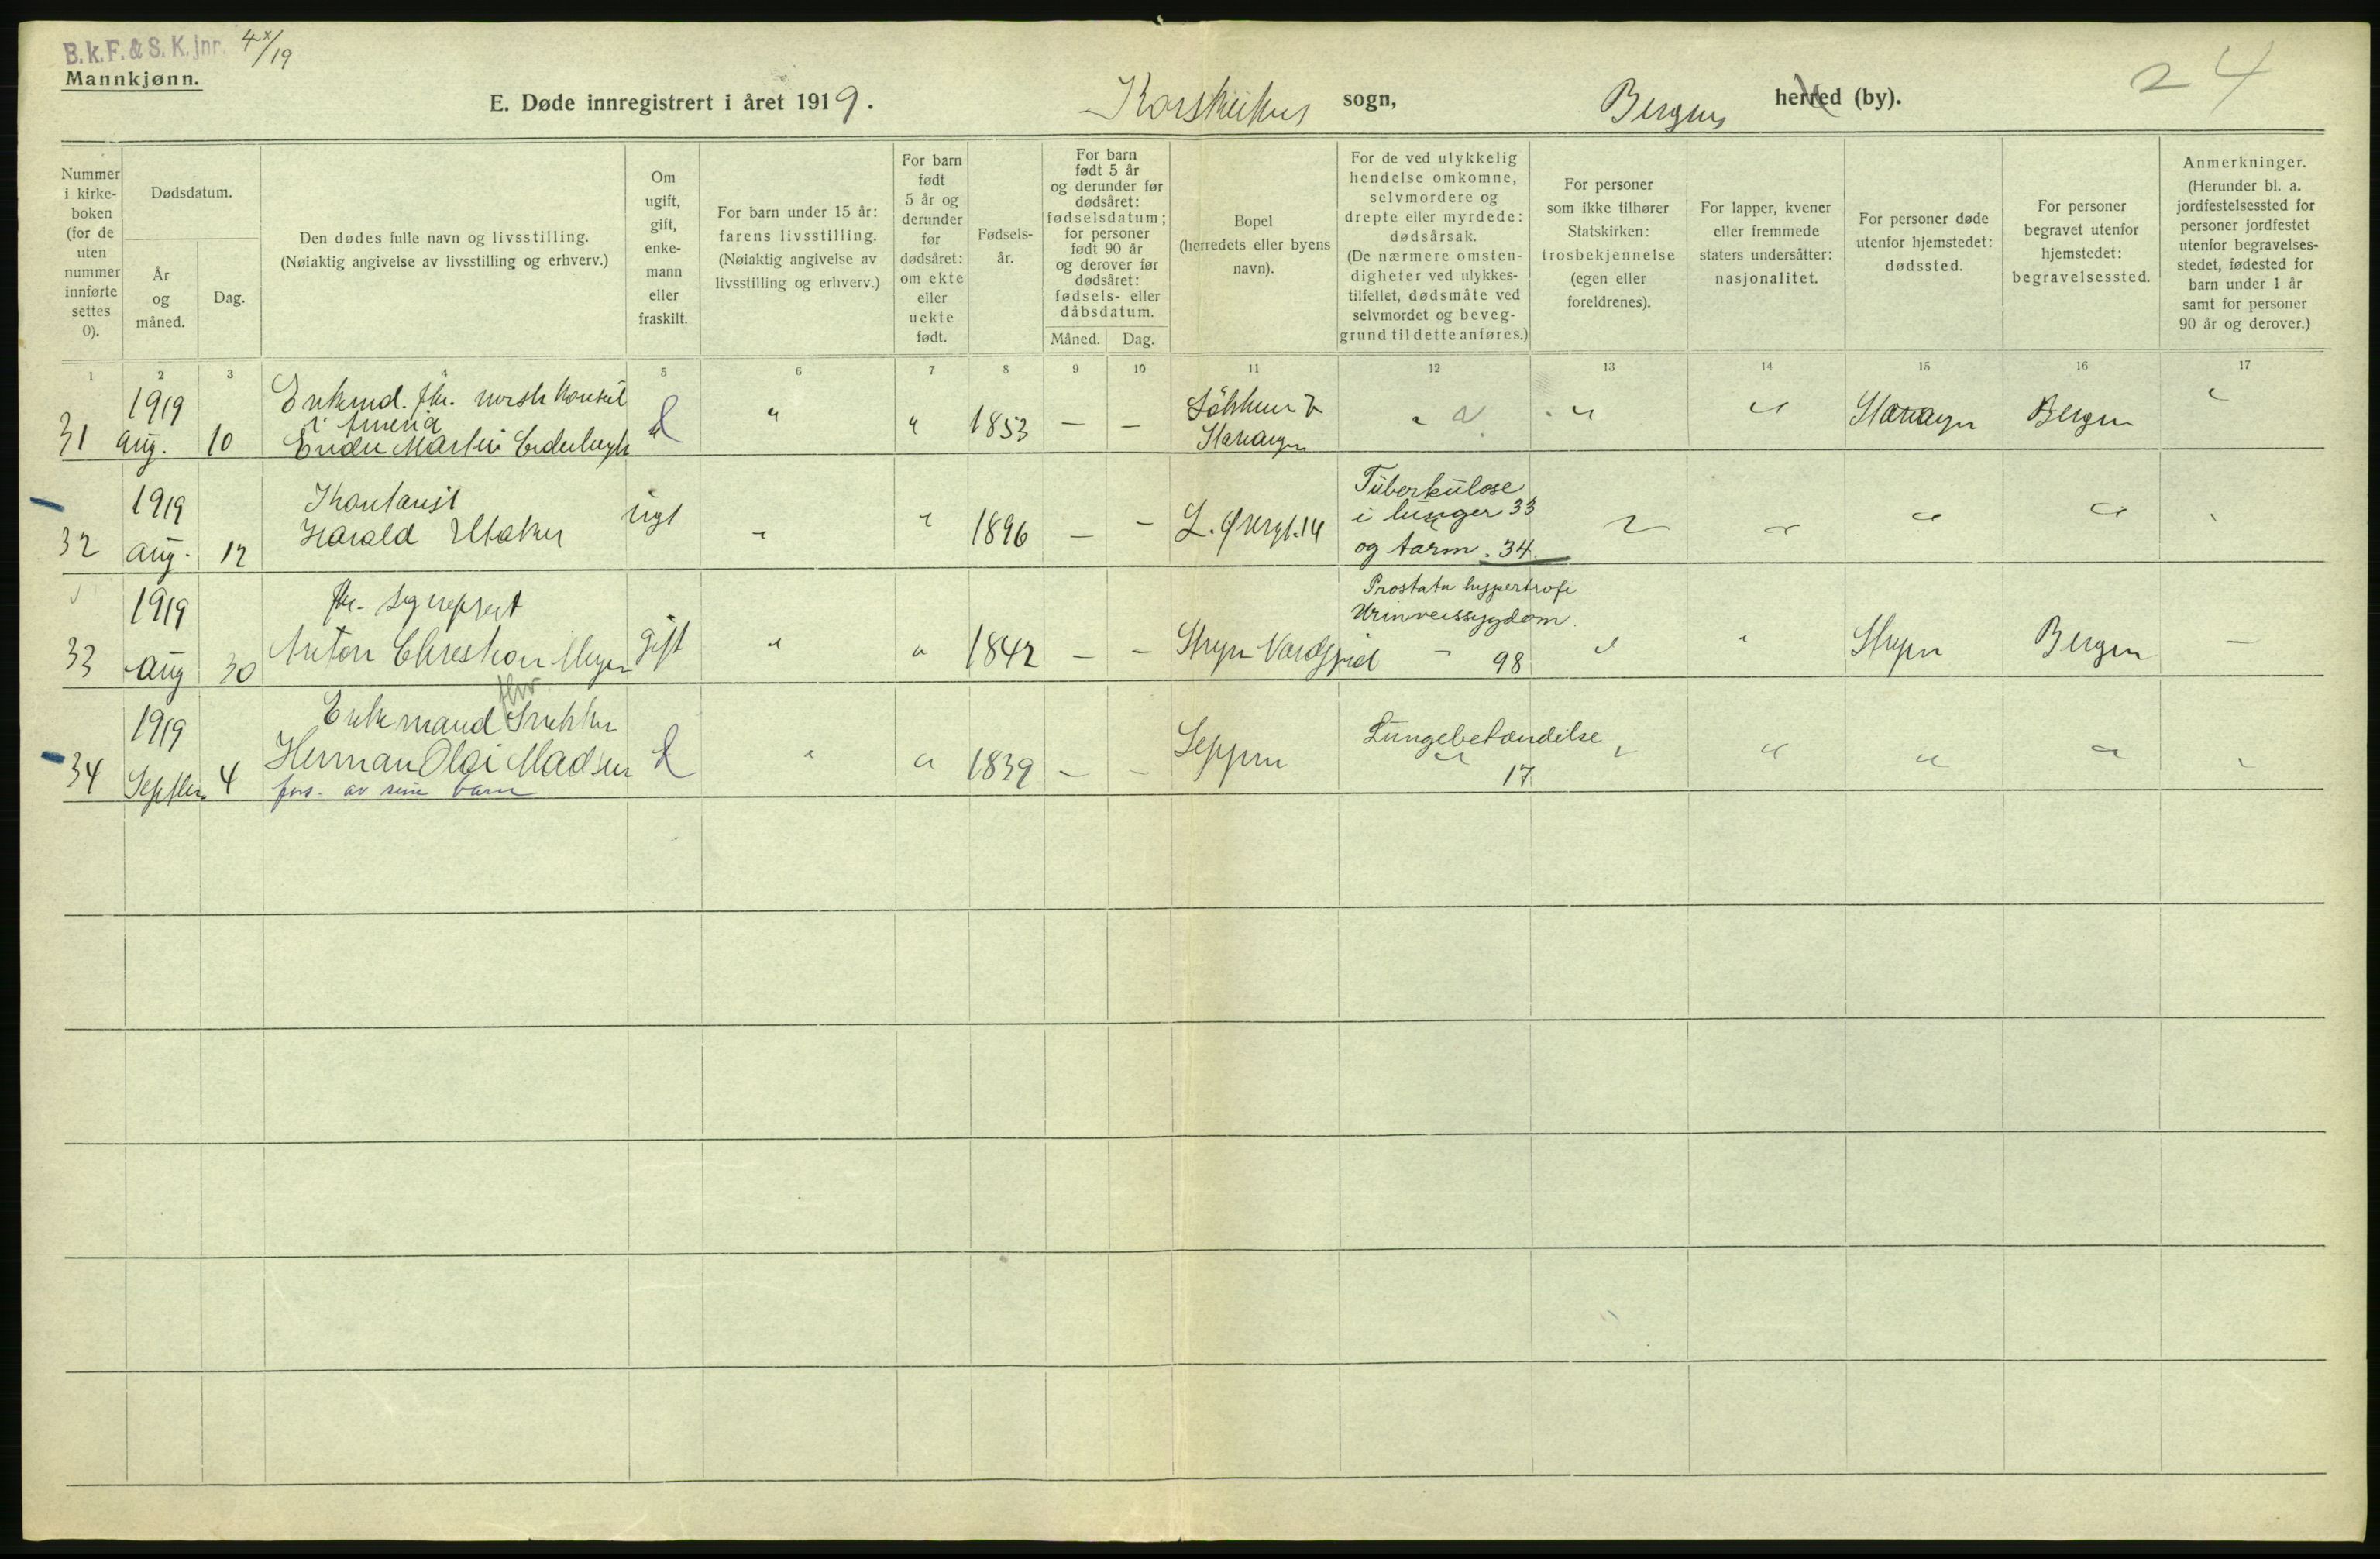 B.k.F. & S. K. jnr. 4x/19
Mannkjønn.
E. Døde innregistrert i året 1919. Korskirkens sogn, Bergens herred (by).
24
Nummer i kirkeboken (for de uten nummer innførte settes 0).
Dødsdatum.
År og måned.
Dag.
Den dødes fulle navn og livsstilling.
(Nøiaktig angivelse av livsstilling og erhverv.)
Om ugift, gift, enkemann eller fraskilt.
For barn under 15 år: farens livsstilling.
(Nøiaktig angivelse av livsstilling og erhverv.)
For barn født 5 år og derunder før dødsåret: om ekte eller uekte født.
Fødselsår.
For barn født 5 år og derunder før dødsåret: fødselsdatum; for personer født 90 år og derover før dødsåret: fødsels- eller dåbsdatum.
Måned.
Dag.
Bopel
(herredets eller byens navn).
For de ved ulykkelig hendelse omkomne, selvmordere og drepte eller myrdede: dødsårsak.
(De nærmere omstendigheter ved ulykkestilfellet, dødsmåte ved selvmordet og beveggrund til dette anføres.)
For personer som ikke tilhører Statskirken: trosbekjennelse
(egen eller foreldrenes).
For lapper, kvener eller fremmede staters undersåtter: nasjonalitet.
For personer døde utenfor hjemstedet: dødssted.
For personer begravet utenfor hjemstedet: begravelsessted.
Anmerkninger.
(Herunder bl. a. jordfestelsessted for personer jordfestet utenfor begravelsesstedet, fødested for barn under 1 år samt for personer 90 år og derover.)
1 2 3 4 5 6 7 8 9 10 11 12 13 14 15 16 17
31 1919 aug. 10 Enkemd. fhv. norsk konsul
i
Endre Martin
" " 1853 — —
Stavanger " " " Stavanger Bergen "
32 1919 aug. 12 Kontorist
Harald Utaker
ugt " " 1896 — — L. Øvregt. 14
Tuberkulose
i lunger 33
og tarm. 34
" " " "
33 1919 aug 30 fhv.
Anton Christian Meyer
gift " " 1842 — — Stryn Nordfjord
Prostata hypertrofi
Urinveissygdom.
98
" " Stryn Bergen —
34 1919 Septbr. 4 Enkemand fhv. Snekker
Herman Olai Madsen
fors. av sine barn
" " 1839 — —
Lungebetændelse
17.
" " " "